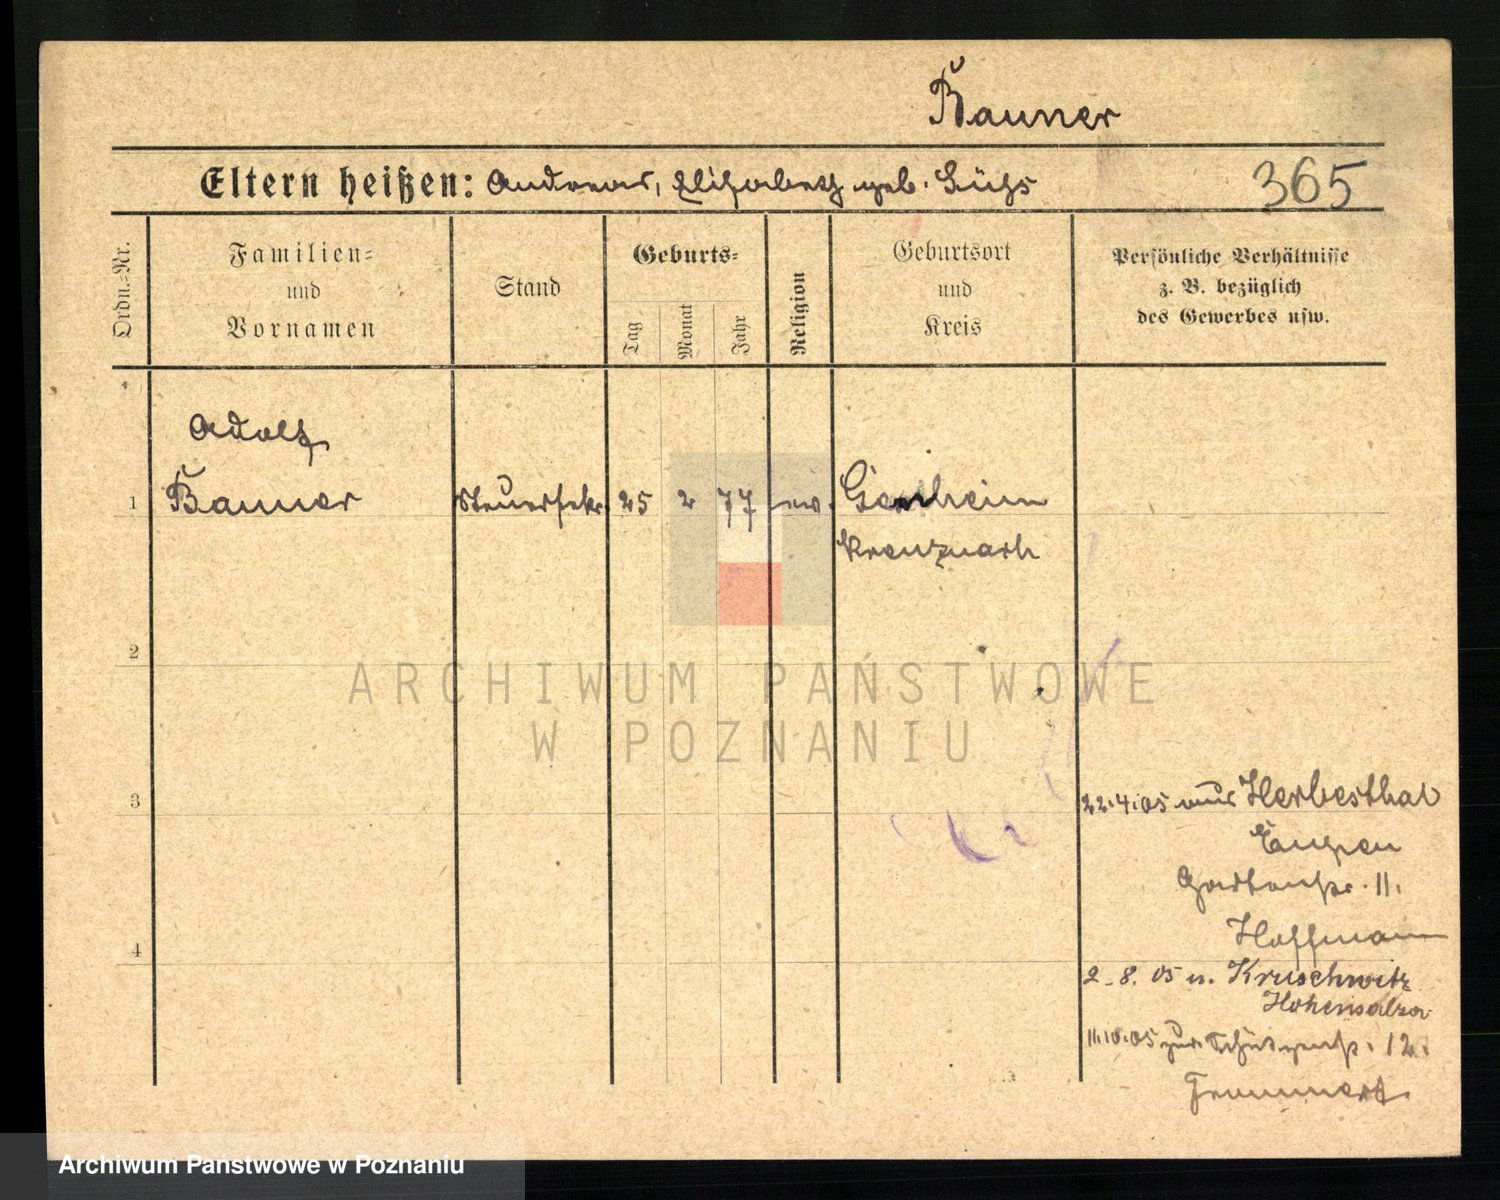 Bauner
Eltern heißen: Andreas, Elisabeth geb. Lühs
365
Ordn.-Nr.
Familien-
und
Vornamen
Stand
Geburts-
Tag
Monat
Jahr
Religion
Geburtsort
und
Kreis
Persönliche Verhältnisse
z. B. bezüglich
des Gewerbes usw.
Adolf
1 Bauner Steuersekr. 25 2 77 ev. Gensheim
Kreuznach
2
3
22.4.05 Herbesthal
Eupen
Gartenstr. 11.
Hoffmann
4
2.8.05 n. Kruschwitz
Hohensalza
11.10.05 zur. Schützenstr. 12.
Frommert.
ARCHIWUM PAŃSTWOWE
W POZNANIU
Archiwum Państwowe w Poznaniu